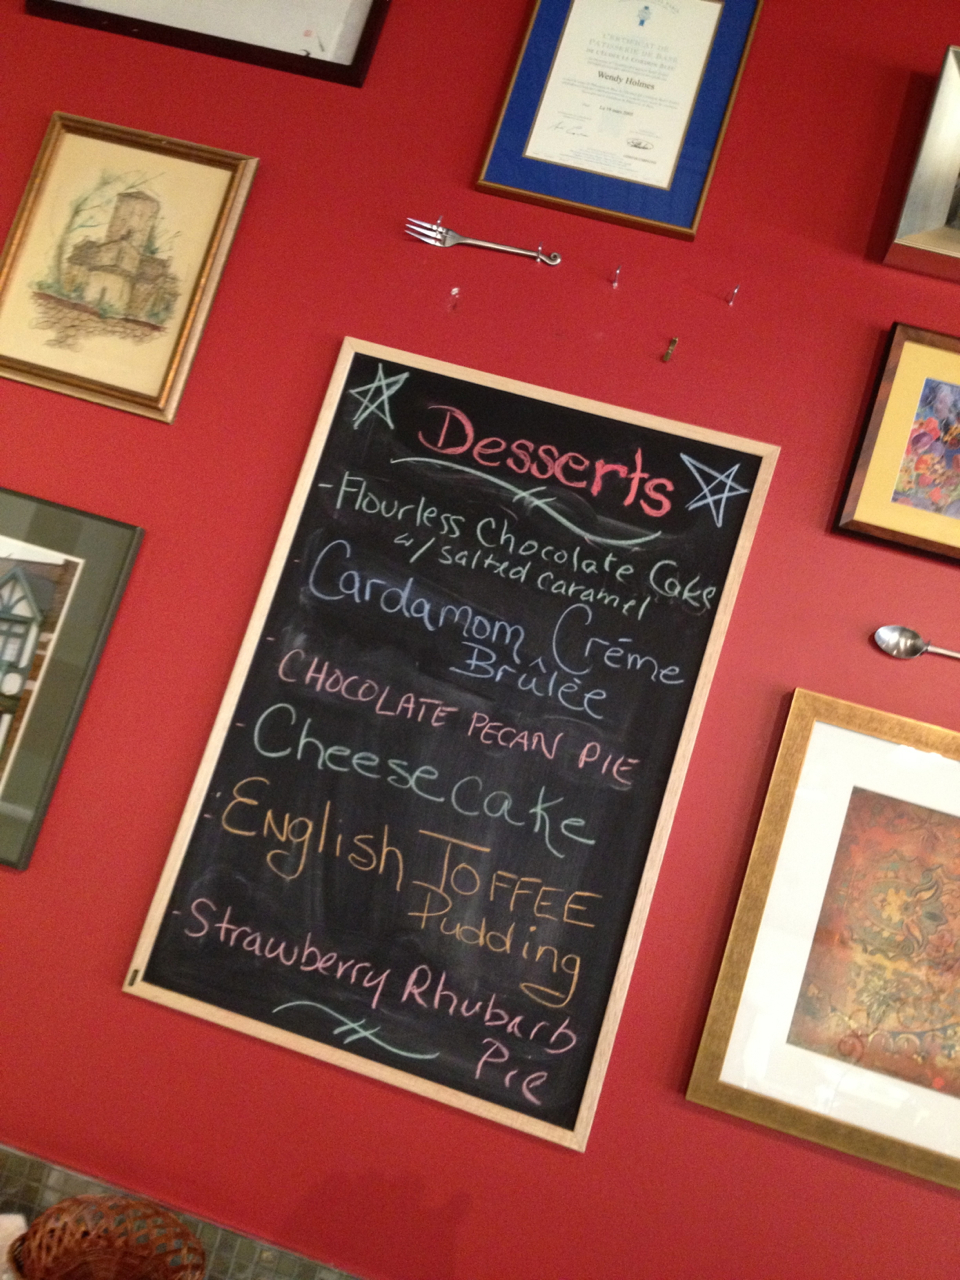 CERTIFICAT DE
PATISSERIE DE BASE
Wendy Holmes
Desserts
- Flourless Chocolate Cake
w/ salted caramel
- Cardamom Créme
Brûlée
- CHOCOLATE PECAN PIE
- Cheesecake
- English TOFFEE
Pudding
- Strawberry Rhubarb
Pie